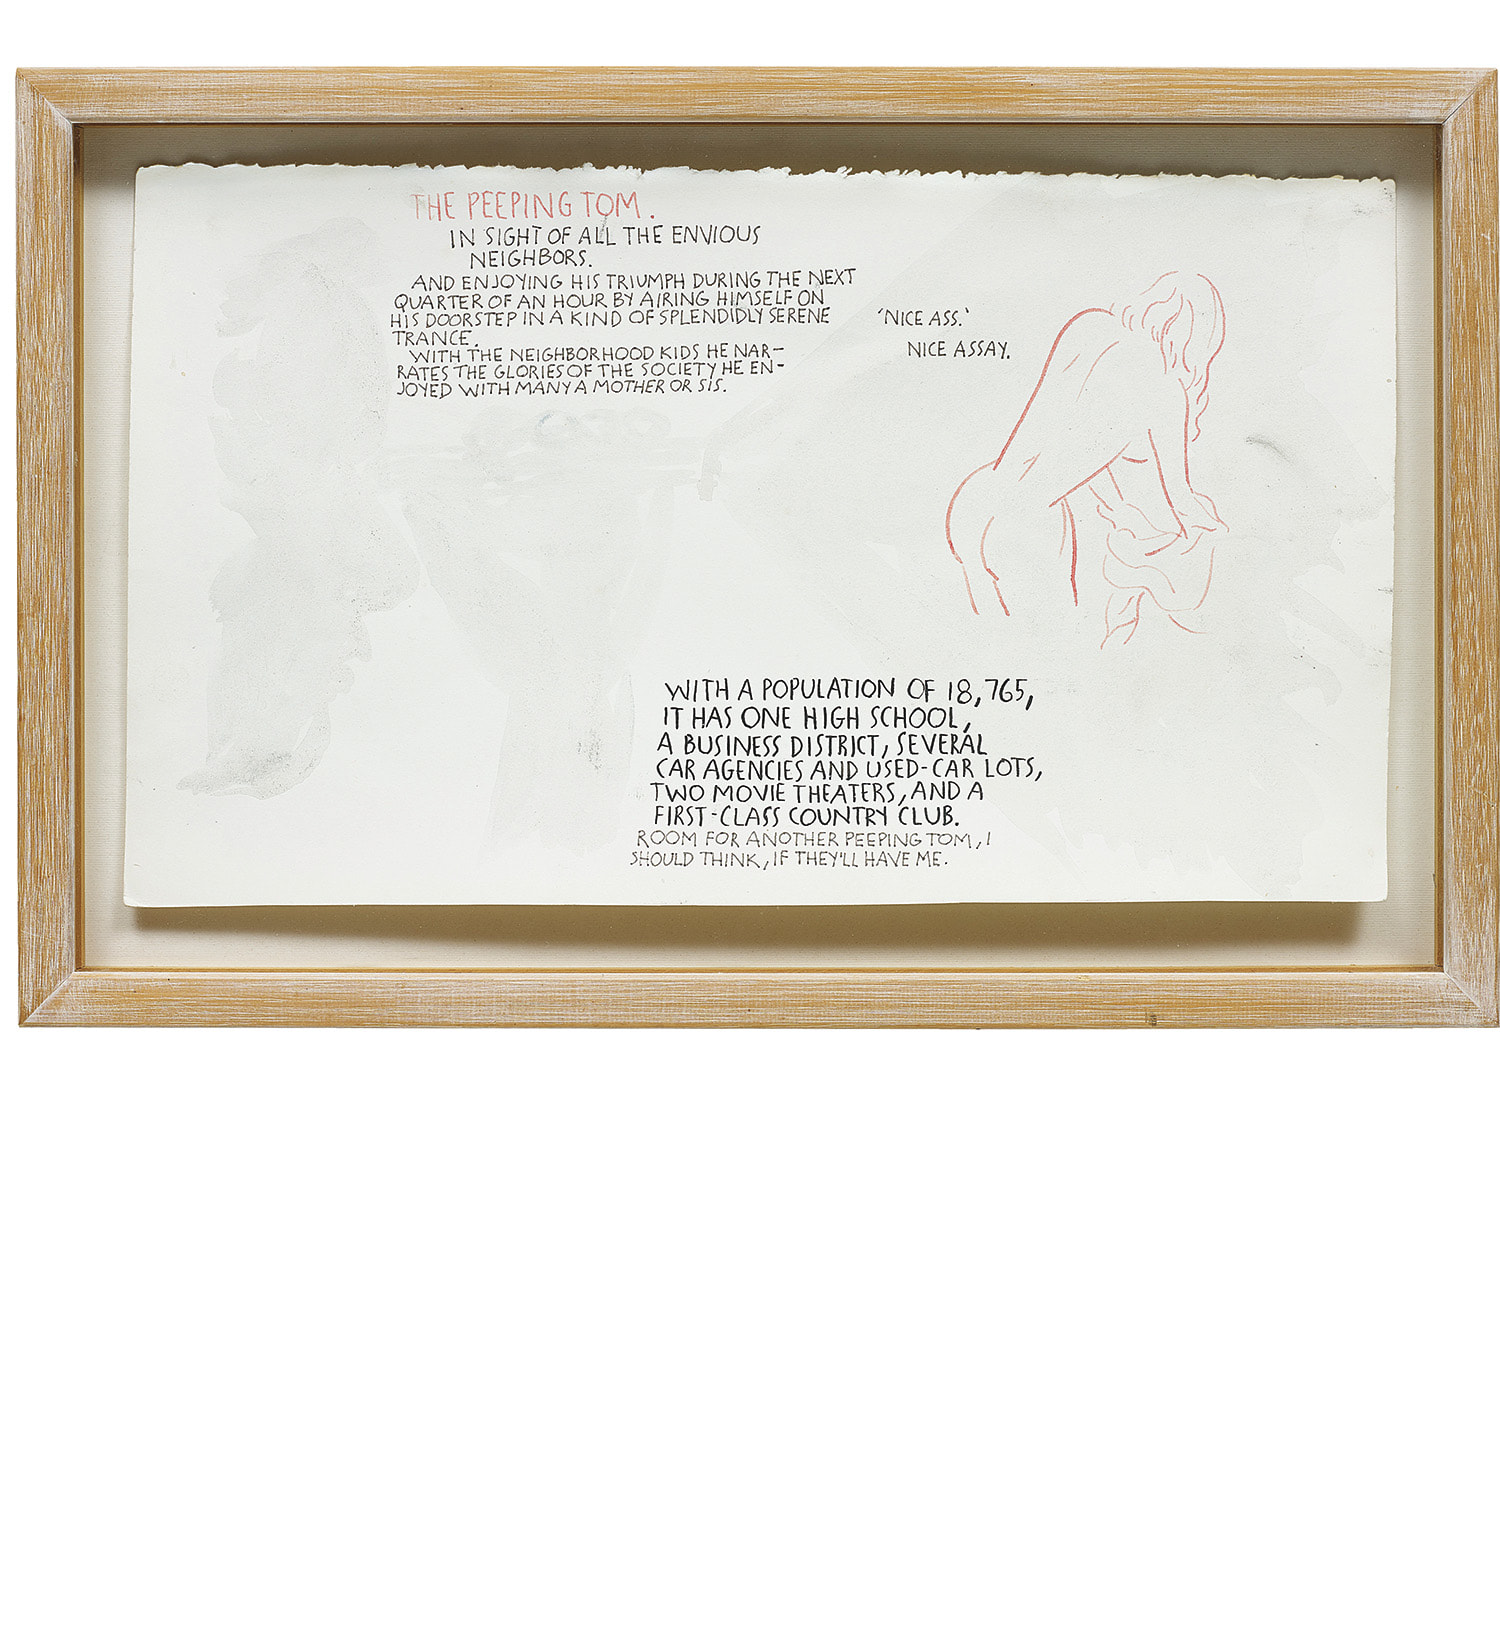 THE PEEPING TOM.
IN SIGHT OF ALL THE ENVIOUS
NEIGHBORS.
AND ENJOYING HIS TRIUMPH DURING THE NEXT
QUARTER OF AN HOUR BY AIRING HIMSELF ON
HIS DOORSTEP IN A KIND OF SPLENDIDLY SERENE
TRANCE.
WITH THE NEIGHBORHOOD KIDS HE NAR-
RATES THE GLORIES OF THE SOCIETY HE EN-
JOYED WITH MANY A MOTHER OR SIS.
'NICE ASS.'
NICE ASSAY.
WITH A POPULATION OF 18,765,
IT HAS ONE HIGH SCHOOL,
A BUSINESS DISTRICT, SEVERAL
CAR AGENCIES AND USED-CAR LOTS,
TWO MOVIE THEATERS, AND A
FIRST-CLASS COUNTRY CLUB.
ROOM FOR ANOTHER PEEPING TOM, I
SHOULD THINK, IF THEY'LL HAVE ME.